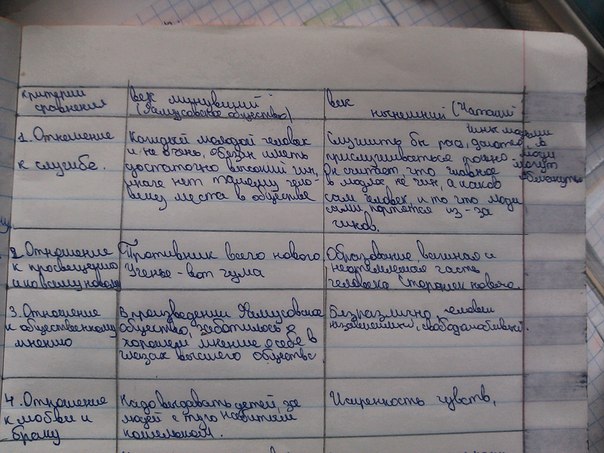 критерий сравнения
век минувший
(Фамусовское общество)
век нынешний (Чатский
1. Отношение к службе.
Каждый молодой человек
и не очень, обязан иметь
достаточно высокий чин,
иначе нет такому чело-
веку места в обществе
Служить бы рад,
прислушиваться тошно
Он считает, что главное
в людях не чин, а каков
сам человек, и то что люди
сами портятся из-за
чинов.
чины людьми
даются а
люди
могут
обмануть
2. Отношение
к просвещению
и ко всему новому
Противник всего нового
Ученье - вот чума
Образование, великая и
неотъемлемая часть
человека Сторонник нового.
3. Отношение
к общественному
мнению
В произведении Фамусовское
общество, заботилось о
хорошем мнение о себе в
глазах высшего общества.
Безразлично, человек
независимый, свободолюбивый.
4. Отношение
к любви и
браку
Надо выдавать детей, за
людей с туго набитым
кошельком.
Искренность чувств,